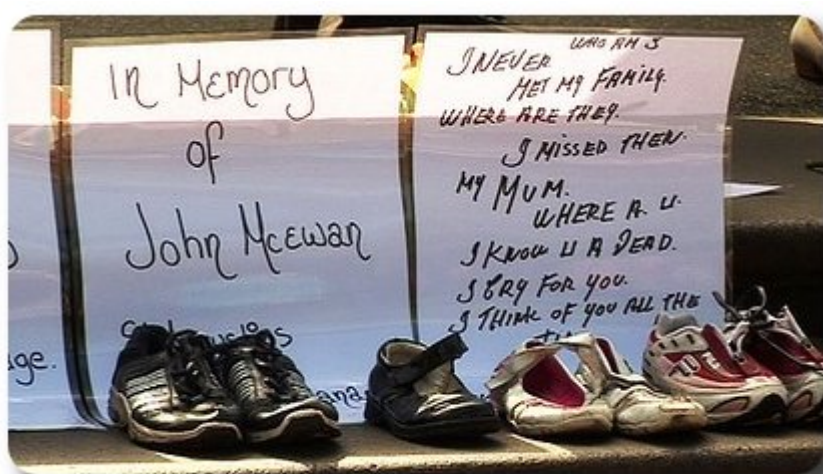 In Memory
of
John McEwan
ge.
ana
WHO AM I
I NEVER
MET MY FAMILY.
WHERE ARE THEY.
I MISSED THEM.
MY MUM.
WHERE A. U.
I KNOW U A DEAD.
I CRY FOR YOU.
I THINK OF YOU ALL THE
FILA